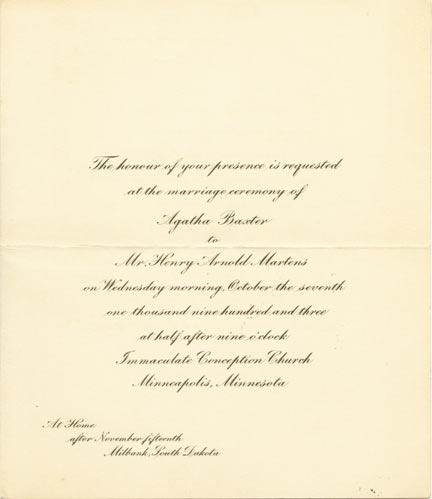 The honour of your presence is requested
at the marriage ceremony of
Agatha Baxter
to
Mr. Henry Arnold Martens
on Wednesday morning, October the seventh
one thousand nine hundred and three
at half after nine o'clock
Immaculate Conception Church
Minneapolis, Minnesota
At Home
after November fifteenth
Milbank, South Dakota